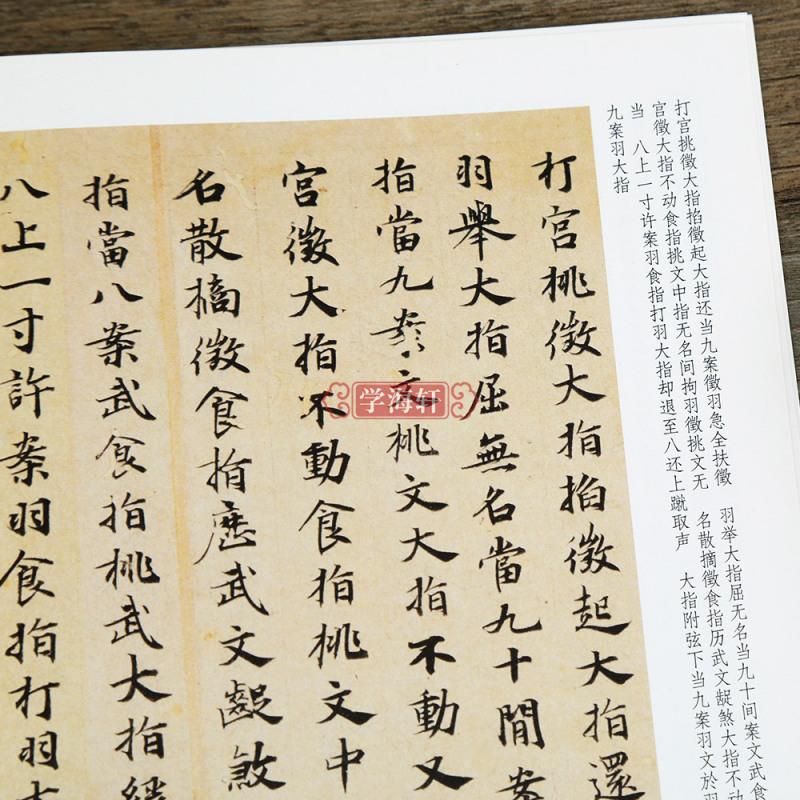 打宫挑徵大指掐徵起大指还当九案徵羽急全扶徵 羽举大指屈无名当九十间案文武食
宫徵大指不动食指挑文中指无名间拘羽徵挑文无 名散摘徵食指历武文龊煞大指不动
当 八上一寸许案羽食指打羽大指却退至八还上蹴取声 大指附弦下当九案羽文於羽
九案羽大指
打宫挑徵大指掐徵起大指還
羽舉大指屈無名當九十間案
指當九案文挑文大指不動又
宫徵大指不動食指挑文中
名散摘徵食指歷武文齪煞
指當八案武食指挑武大指
八上一寸許案羽食指打羽大
学海轩